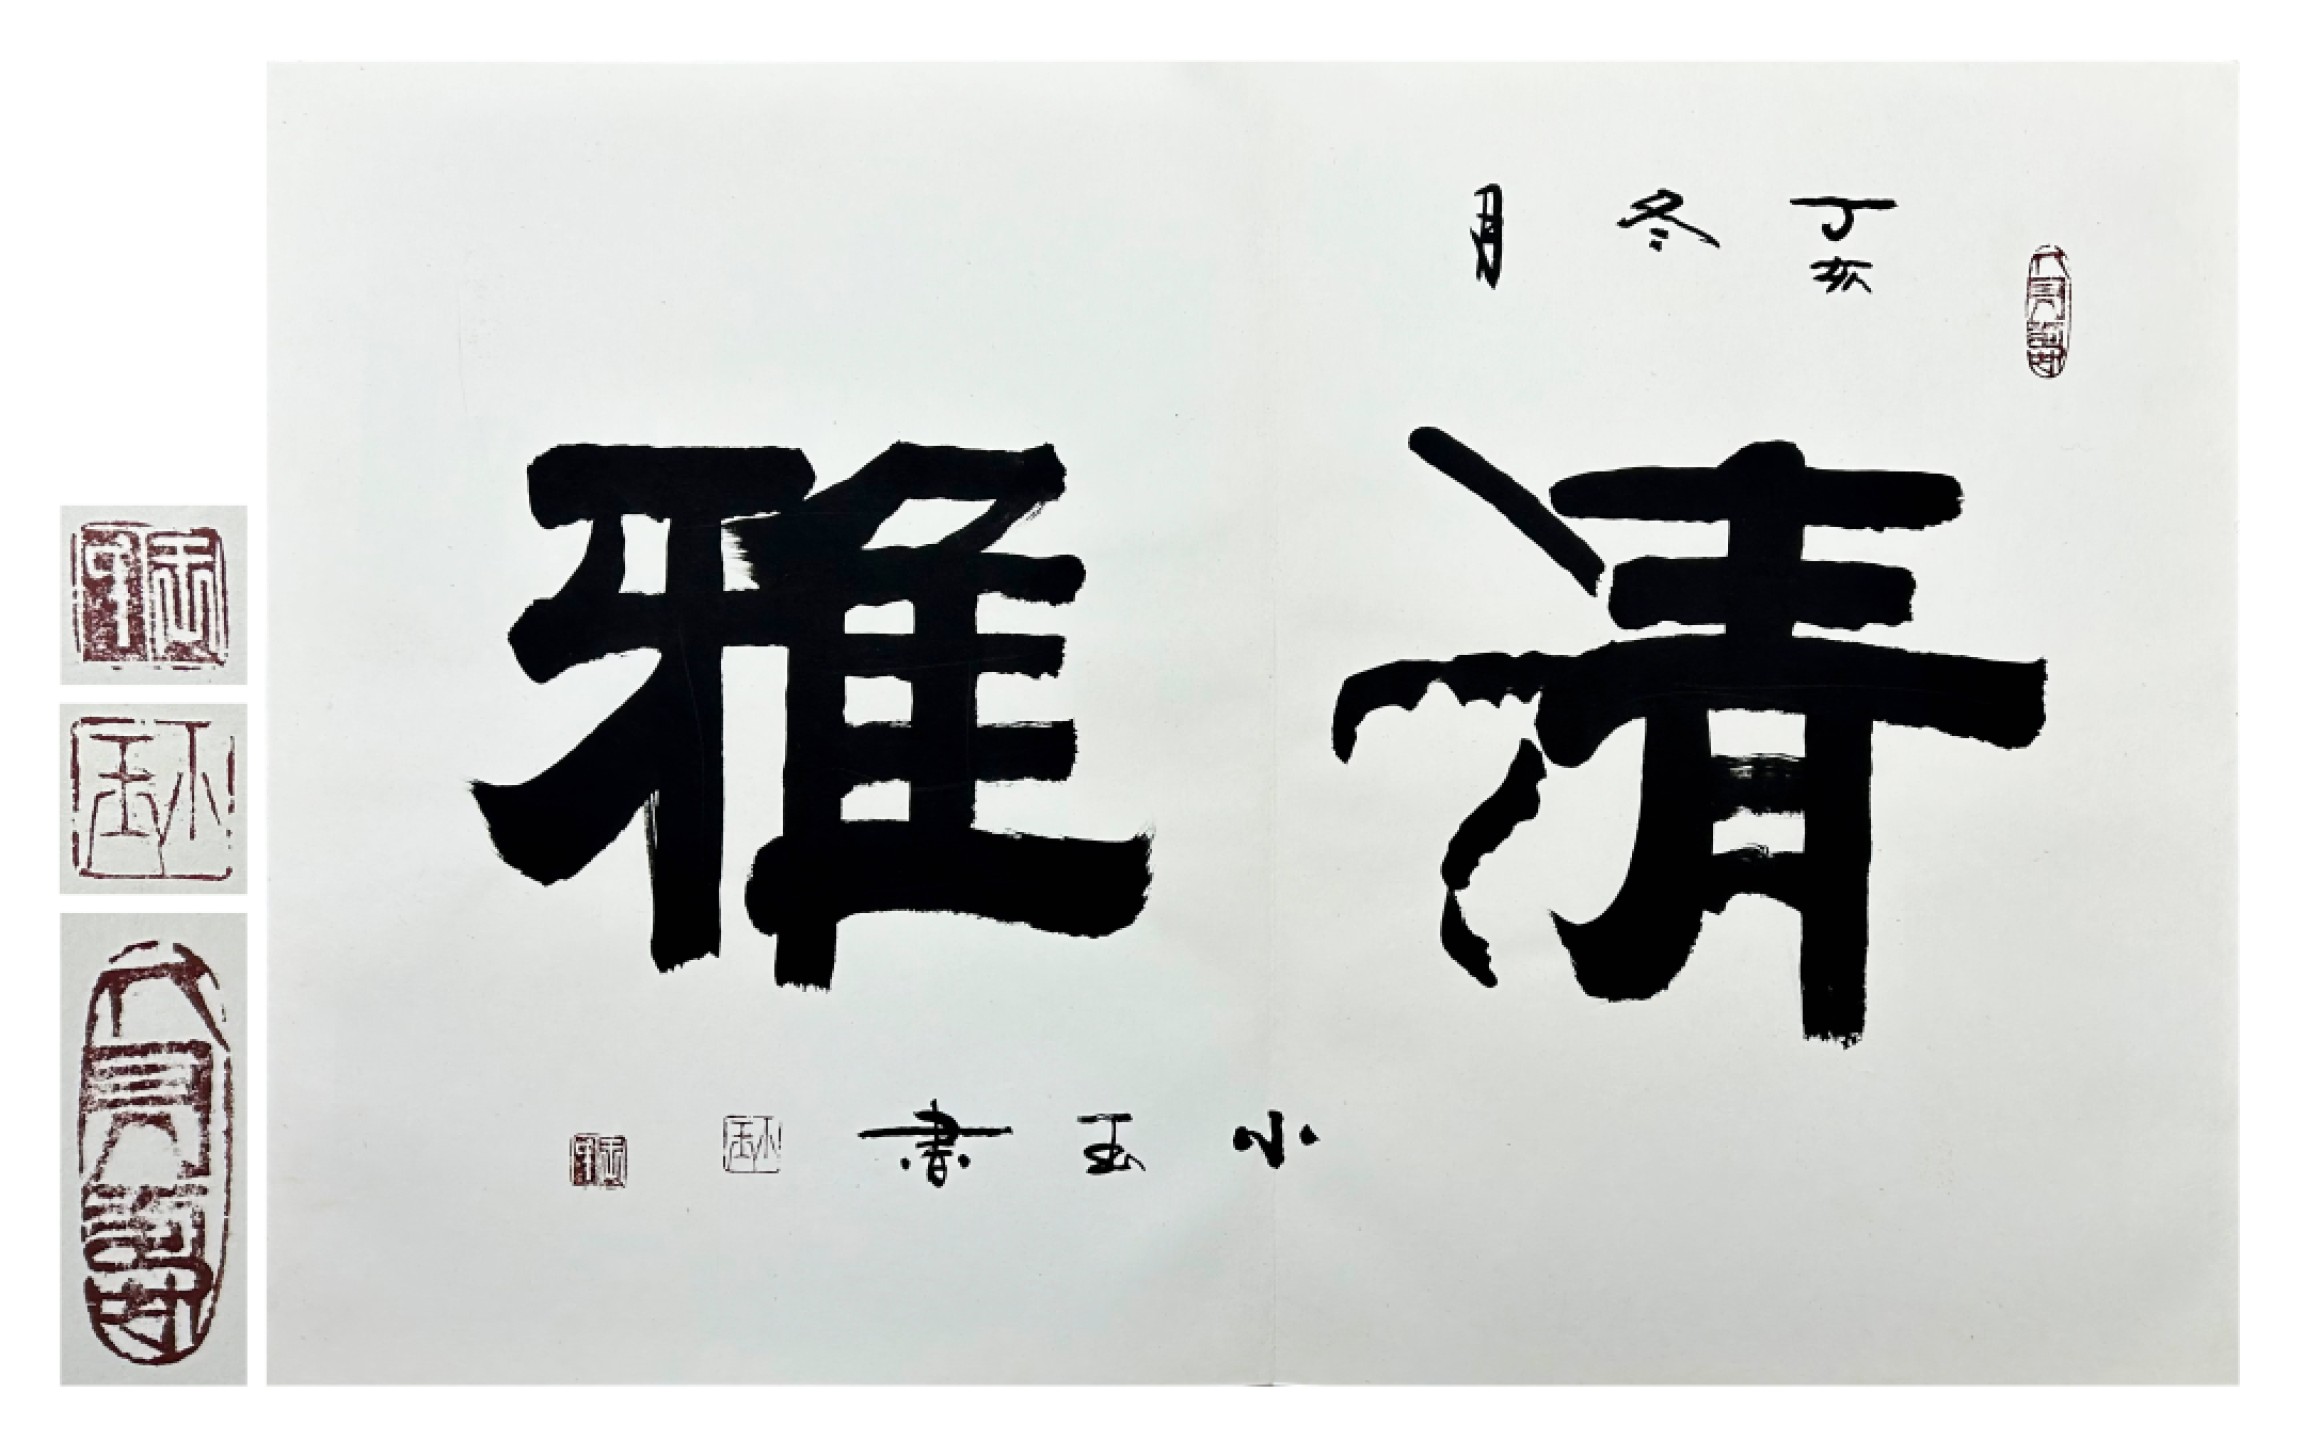 丁亥冬月
清雅
小玉書